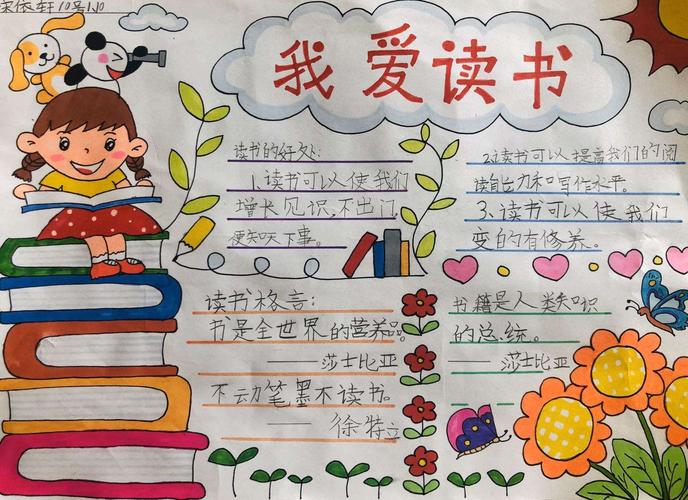 我爱读书
读书的好处:
1.读书可以使我们
增长见识,不出门
便知天下事。
2.读书可以提高我们的阅
读能力和写作水平。
3.读书可以使我们
变的有修养。
读书格言:
书是全世界的营养品。
——莎士比亚
不动笔墨不读书。
——徐特立
书籍是人类知识
的总统。
——莎士比亚